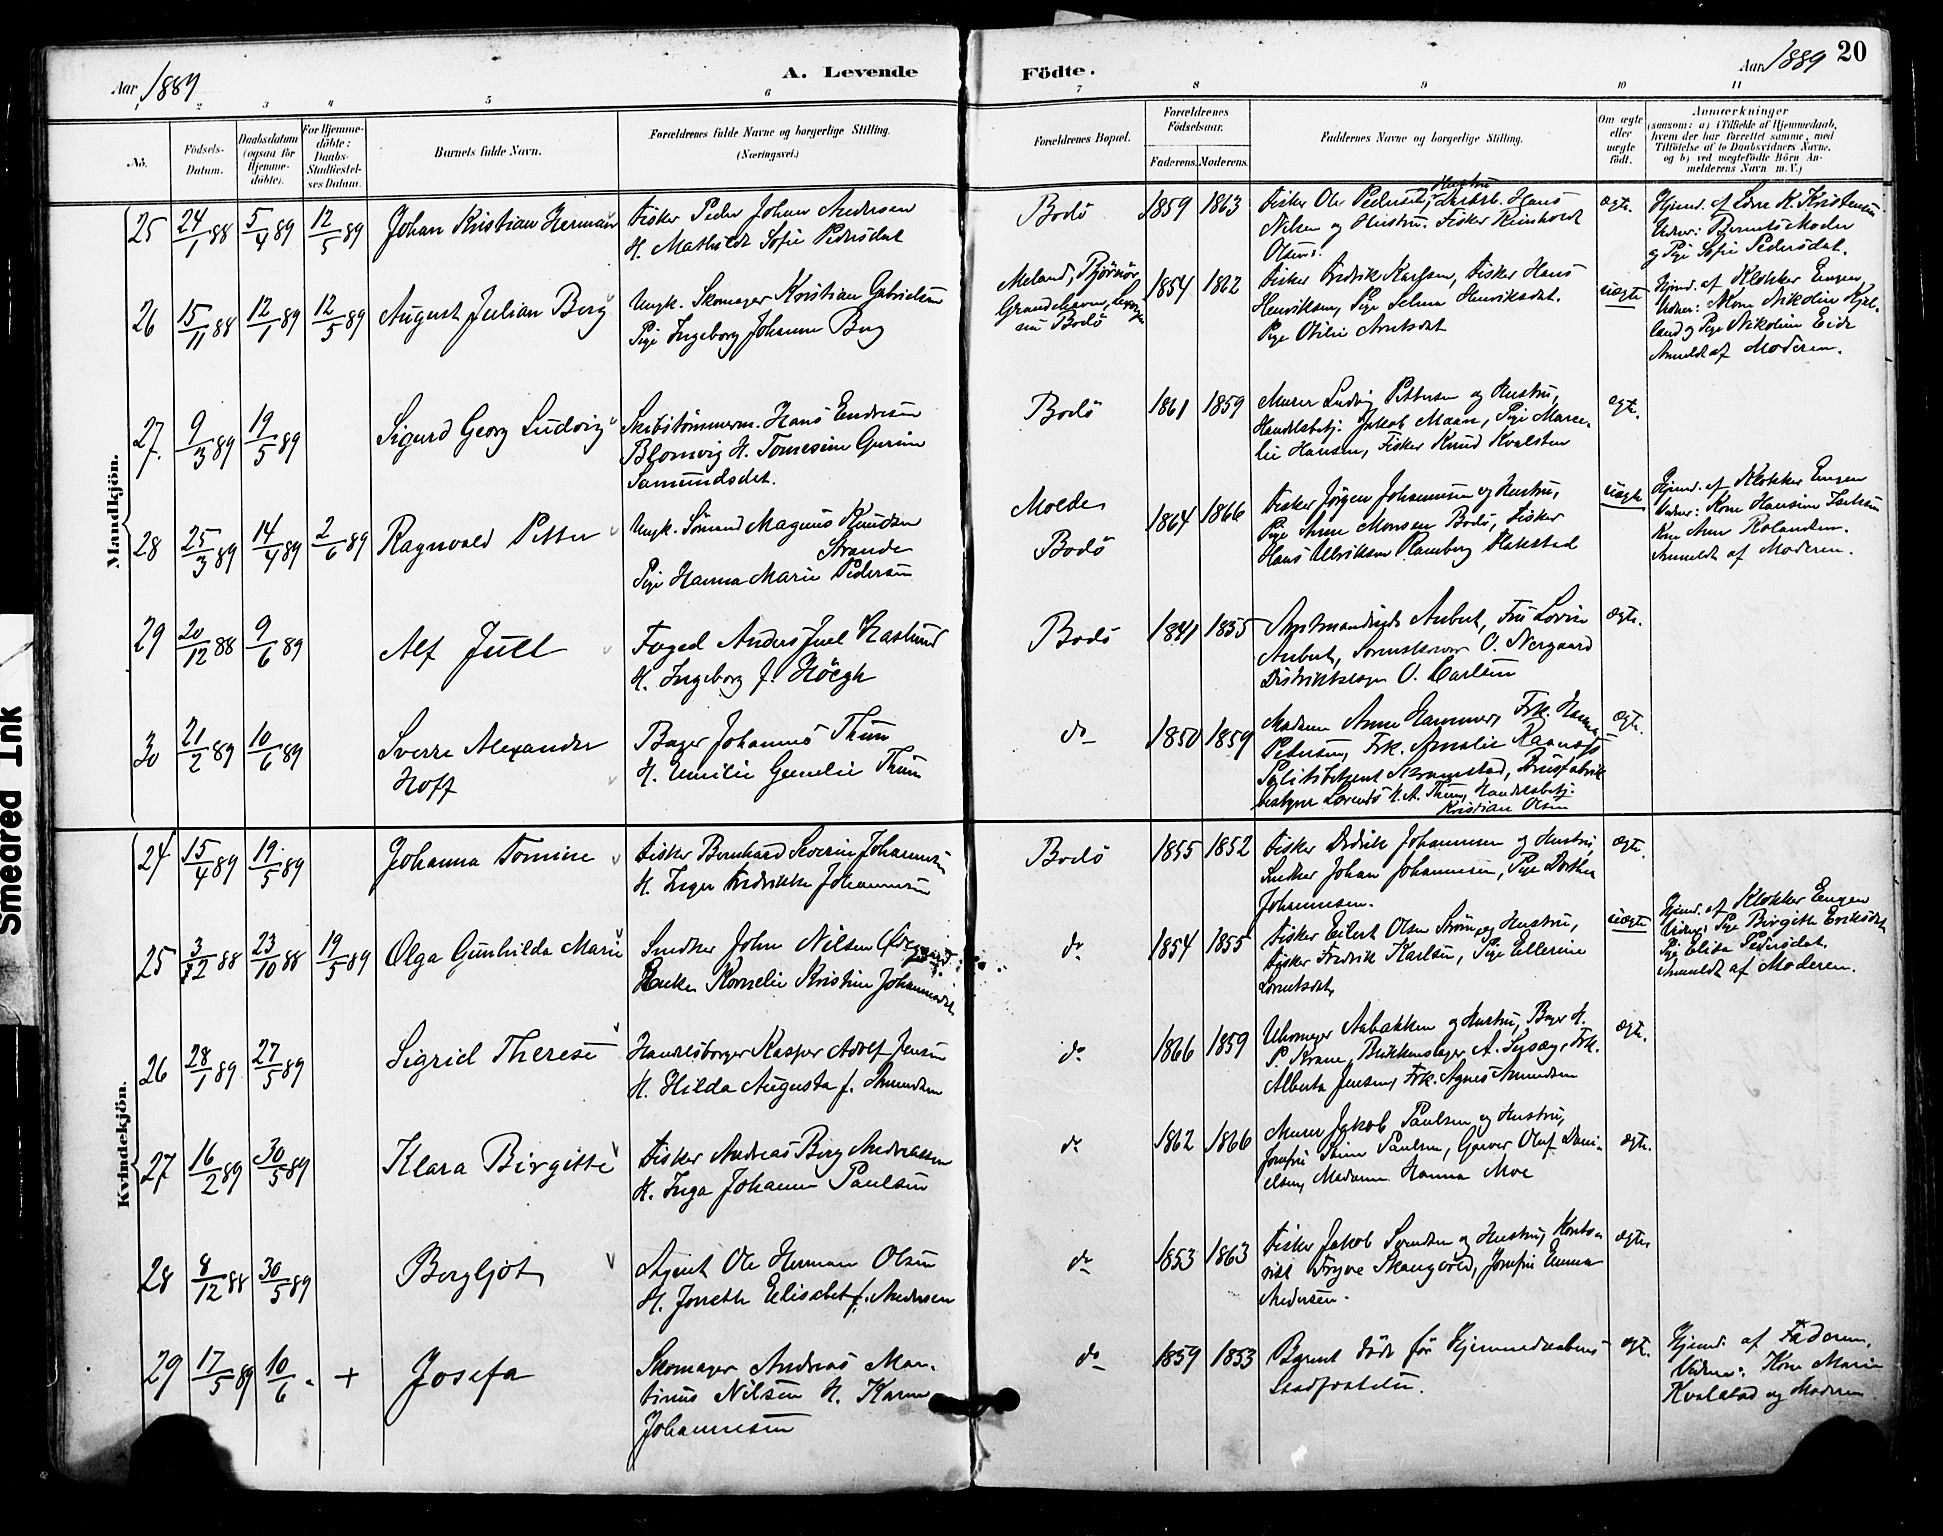 Aar 1889
A. Levende
Födte.
Aar 1889
20
1 2 3 4 5 6 7 8 9 10 11
No.
Födsels-
Datum.
Daabsdatum
(ogsaa for
Hjemme-
döbte).
For Hjemme-
döbte:
Daabs-
Stadfæstel-
ses Datum.
Barnets fulde Navn.
Forældrenes fulde Navne og borgerlige Stilling.
(Næringsvei.)
Forældrenes Bopæl.
Forældrenes
Födselsaar.
Faderens. Moderens.
Faddernes Navne og borgerlige Stilling.
Om ægte
eller
uægte
födt.
Anmærkninger
(saasom: a) i Tilfælde af Hjemmedaab,
hvem der har forrettet samme, med
Tilföielse af to Daabsvidners Navne,
og b) ved uægtefödte Börn An-
melderens Navn m. V.)
Mandkjön.
25 24/1 88 5/4 89 12/5 89
Johan Kristian Herman
Fisker Peder Johan Andersen
H. Mathilde Sofie Pedersdat
Bodö
1859 1863
Fisker Ole Pedersen, Hustru Hans
Nilsen og Hustru. Fisker Reinholdt
Olsen.
ægte.
Hjemd. af Kristensen
Vidner: Barnets Moder
og Pige Sofie Pedersdat.
26 15/11 88 12/1 89 12/5 89
August Julian Berg
Ungk. Skomager Kristian Gabrielsen
Pige Ingeborg Johanne Berg
Meland, Bjørnør
Bodö
1854 1862
Fisker Fredrik Karlsen, Fisker Hans
Henriksen, Pige Selma Henriksdat.
Pige Otilie Arntsdat
uægte
Hjemd. af Klokker Engen
Vidner: Kone Nikoline Kjel-
land og Pige Nikoline Eide
Anmeldt af Moderen.
27. 9/3 89 19/5 89
Sigurd Georg Ludvig
Skibstömmerm. Hans Endresen
Blomvig H. Tomesine Gurine
Samundsdat.
Bodö
1861 1859
Murer Ludvig Pettersen og Hustru,
Handelsbetj. Jakob Maan, Pige Marce-
lie Hansen, Fisker Knud Kvalsten
ægte.
28 25/3 89 14/4 89 2/6 89
Ragnvald Petter
Ungk. Sömand Magnus Knudsen
Strande
Pige Hanna Marie Pedersen
Molde
Bodö
1864 1866
Fisker Jörgen Johannesen og Hustru,
Pige Anne Monsen Bodö, Fisker
Hans Ulriksen Ramberg Flakstad
uægte
Hjemd. af Klokker Engen
Vidner: Kone Hansine
Kone Ane Rolandsen.
Anmeldt af Moderen.
29 20/12 88 9/6 89
Alf Juel
Foged Anders Juel Kaslund
H. Ingeborg f. Höegh
Bodö
1841 1855
Aubert, Fru Lovise
Aubert, Sorenskriver O. Nergaard
Distriktslæge O. Carlsen
ægte.
30 21/2 89 10/6 89
Sverre Alexander
Hoff
Bager Johannes Thun
H. Emilie Gemelie Thun
do
1850 1859
Madam Anne Hammer, Frk. Hanna
Pedersen, Frk. Amalie Raanes
Politibetjent Skramstad,
bestyrer Lorents H. A. Thun, Handelsbetj.
Kristian Olsen
ægte.
Kvindekjön.
24 15/4 89 19/5 89
Johanna Tomine
Fisker Bernhard Severin Johannesen
H. Inger Fredrikke Johannesen
Bodö
1855 1852
Fisker Didrik Johannesen og Hustru,
Snedker Johan Johannesen, Pige Dorthea
Johannesen.
ægte.
25 3/12 88 23/10 88 19/5 89
Olga Gunhilda Marie
Snedker John Nilsen Ödegaard
Enke Kornelie Kristine Johannesdat
do
1854 1855
Fisker Eilert Olsen Ström og Hustru,
Fisker Fredrik Karlsen, Pige Ellerine
Lorentsdat,
uægte
Hjemd. af Klokker Engen
Vidner: Pige Birgitte Eriksdat,
Pige Elisa Pedersdat.
Anmeldt af Moderen.
26 28/1 89 27/5 89
Sigrid Therese
Handelsborger Kasper Adolf Jensen
H. Hilda Augusta f. Amundsen
do
1866 1859
Uhrmager Aabakken og Hustru, Bager H.
P. Krane, Blikkenslager A. Frk.
Alberta Jensen, Frk. Agnes Amundsen
ægte.
27 16/2 89 30/5 89
Klara Birgitte
Fisker Andreas Berg Andreassen
H. Inga Johanne Paulsen
do
1862 1866
Murer Jakob Paulsen og Hustru,
Josefine Paulsen, Garver Oluf Dani-
elsen, Madame Hanna Moe
ægte.
28 8/12 88 30/5 89
Bergljot
Agent Ole Herman Olsen
H. Jorette Elisabet f. Andersen
do
1853 1863
Fisker Jakob Svendsen og Hustru, Kontо-
rist Trygve Skangvold, Josefine Emma
Andersen.
ægte
29 17/5 89 10/6 „ +
Josefa
Skomager Andreas Mar-
tinus Nilsen H. Karen
Johannesen
do
1859 1853
Barnet döde för Hjemmedaabens
Stadfæstelse.
ægt.
Hjemd. af Faderen.
Vidner: Kone Marie
Kvalstad og Moderen
Smeared Ink